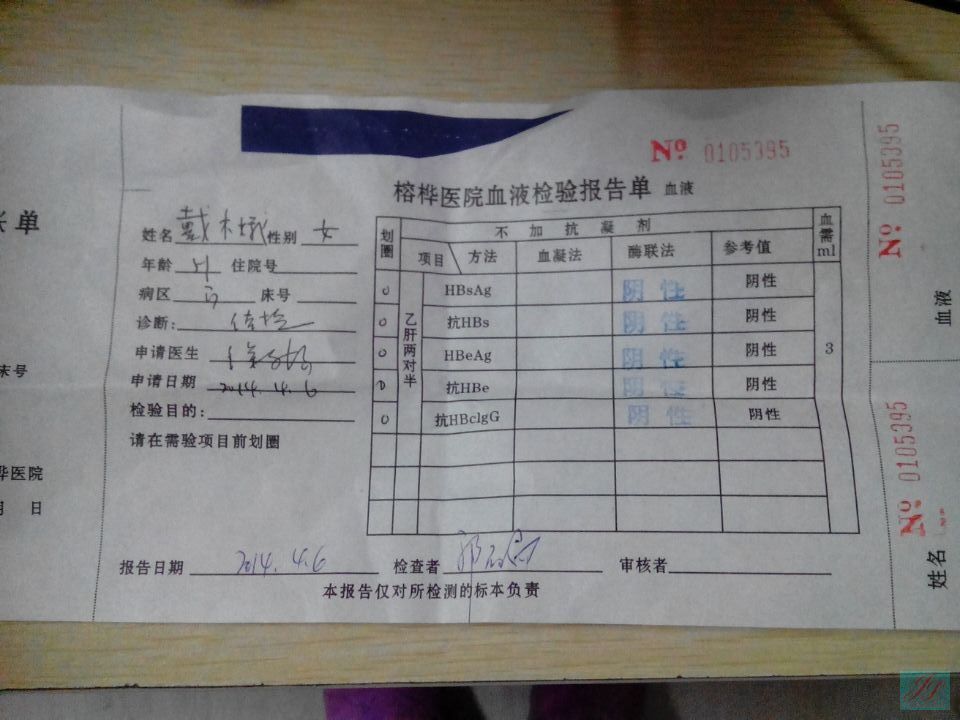 长单
床号
桦医院
月 日
№ 0105395
榕桦医院血液检验报告单 血液
姓名 戴木娥 性别 女
年龄 住院号
病区 床号
诊断:
申请医生
申请日期 2014.4.6
检验目的:
请在需验项目前划圈
划圈 不加抗凝剂 血需ml
项目 方法 血凝法 酶联法 参考值
乙肝两对半
O HBsAg 阴性 阴性
O 抗HBs 阴性 阴性
O HBeAg 阴性 阴性 3
O 抗HBe 阴性 阴性
O 抗HBclgG 阴性 阴性
报告日期 2014.4.6 检查者 审核者
本报告仅对所检测的标本负责
№ 0105395
血液
№ 0105395
姓名